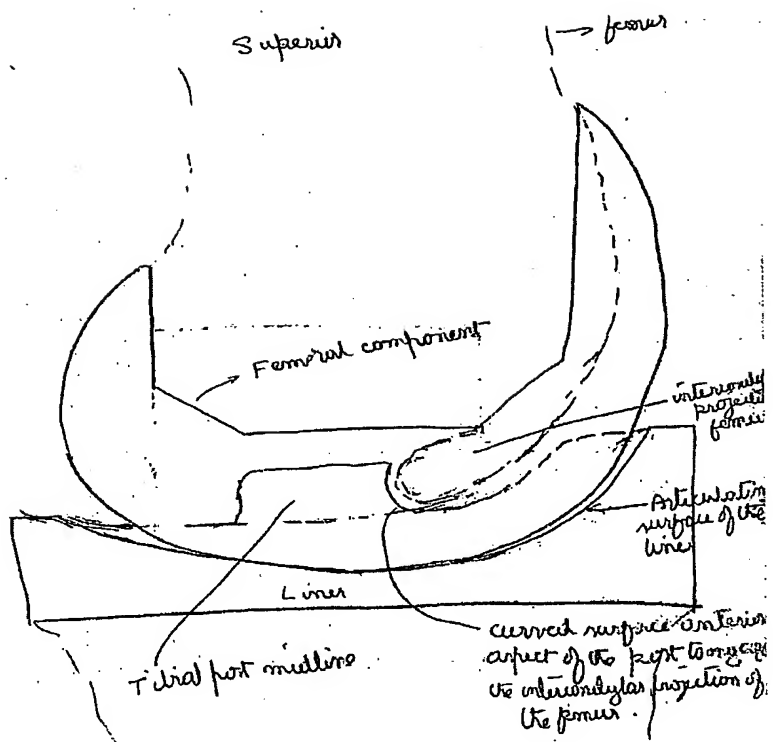 Superior
femur
Femoral component
Articulating
surface of the
liner
Liner
Tibial post midline
curved surface anterior
aspect of the post to
the intercondylar projection of
the femur.